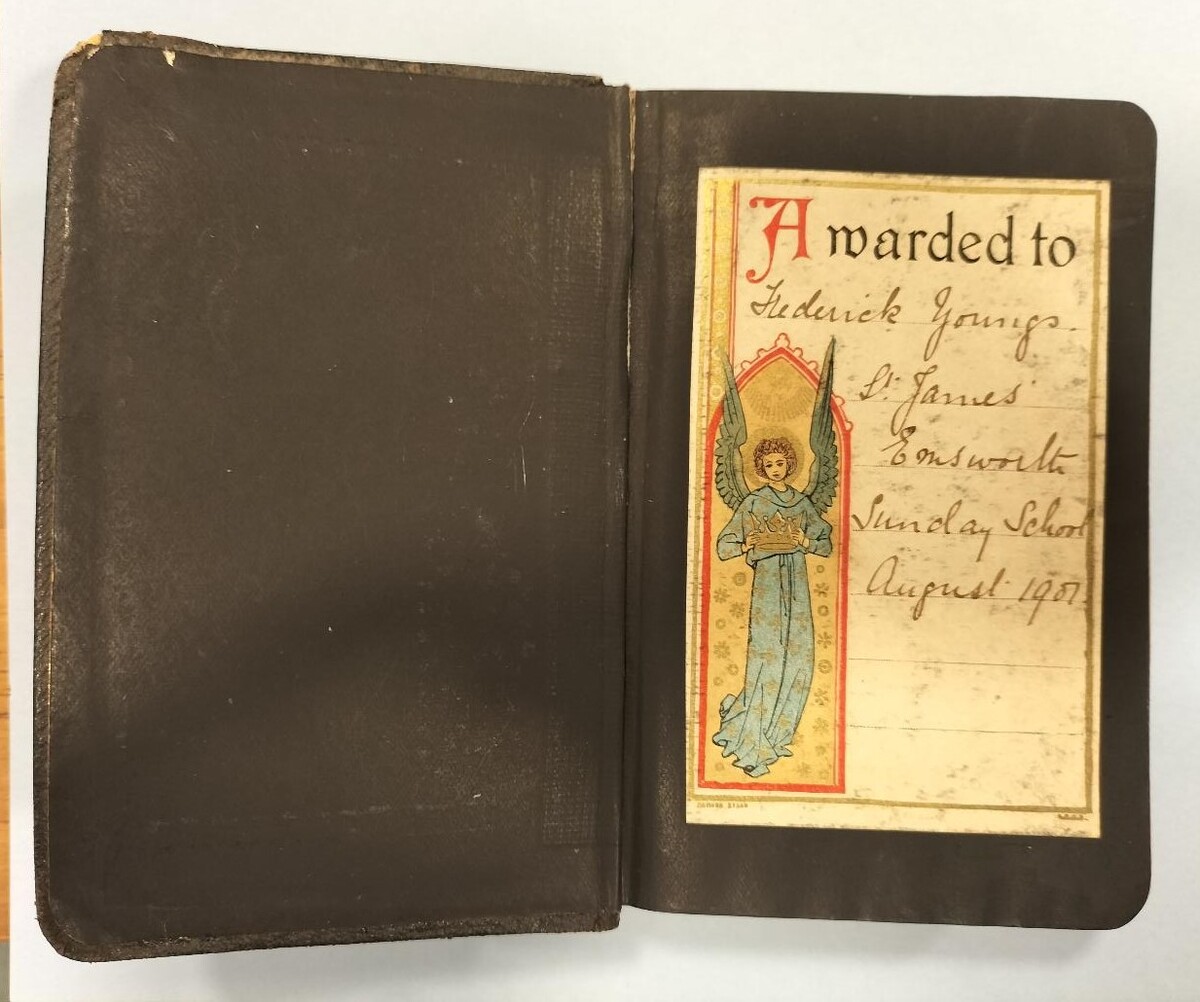 Awarded to
Frederick Youngs.
St. James'
Emsworth
Sunday School
August 1901.